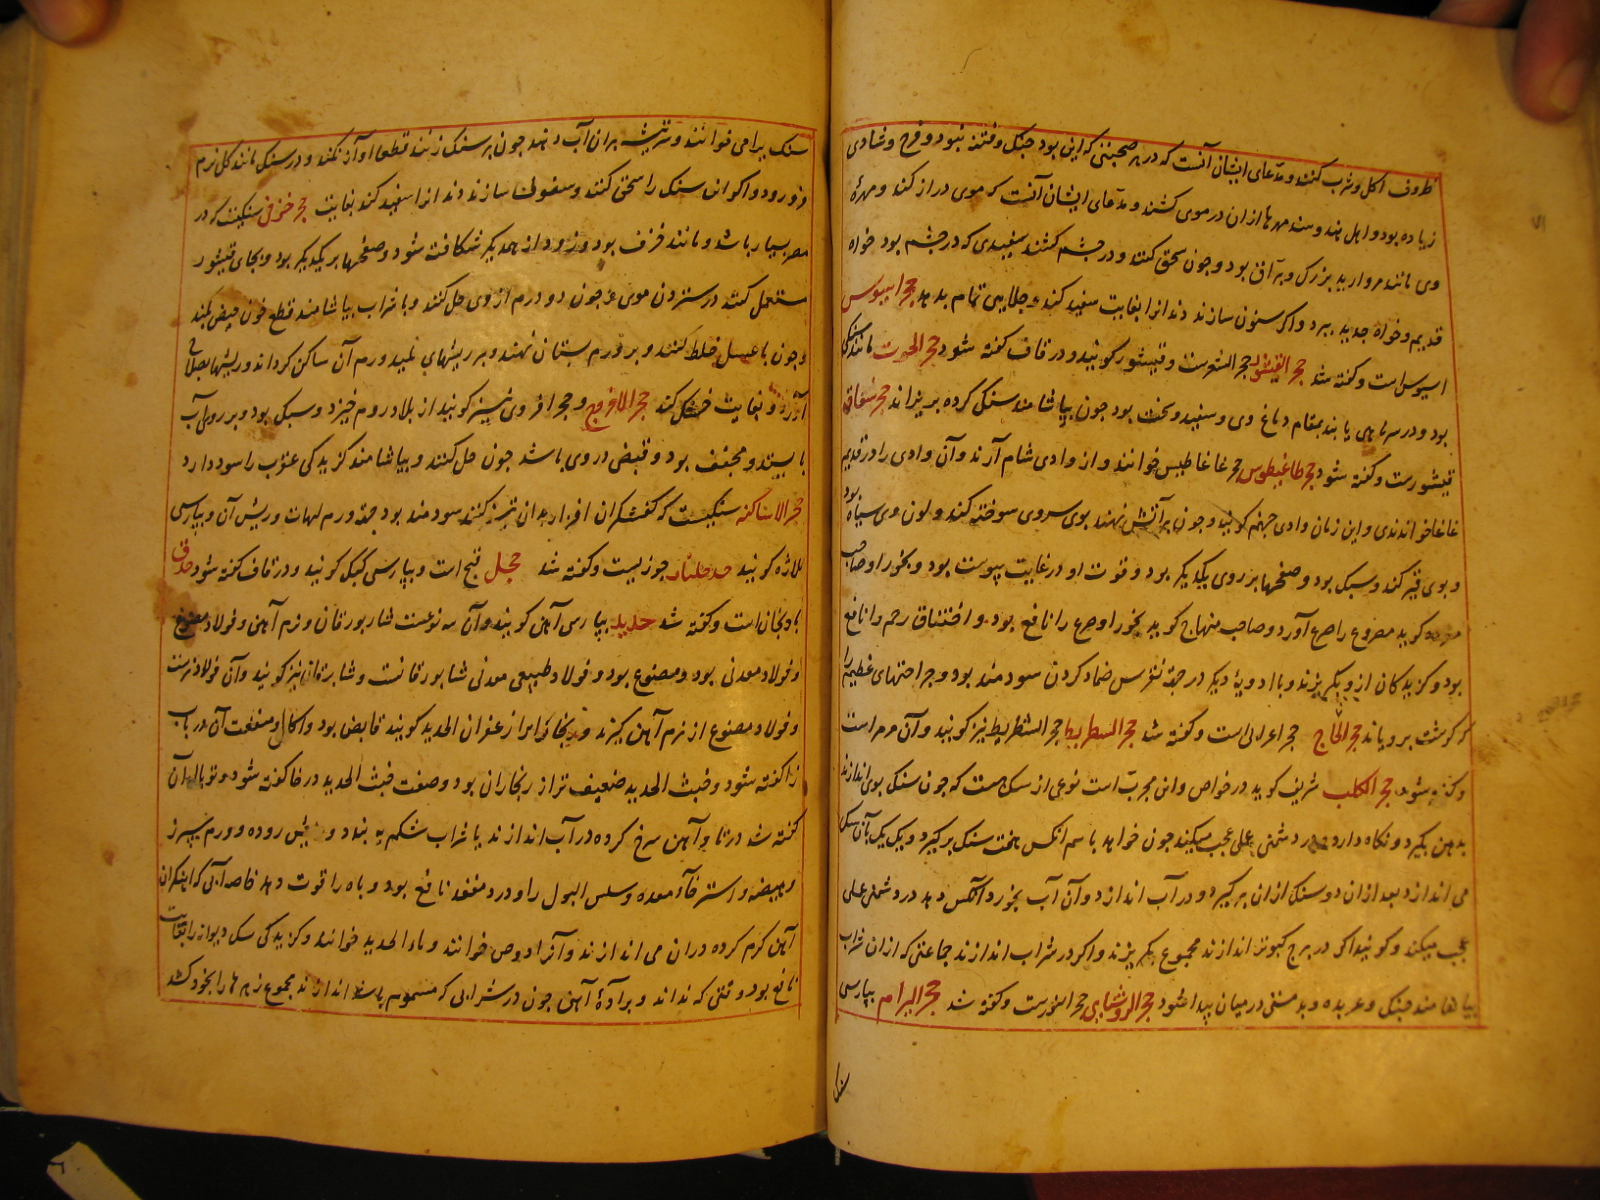 ظروف اکل و شرب کنند و مدعای ایشان آنست که در هر صحبتی که این بود جنک و فتنه نبود و فرح و شادی
زیاده بود و اهل هند و سند مهرها از ان در موی کشند و مدعای ایشان آنست که موی دراز کند و مهرهٔ
وی مانند مروارید بزرک و براق بود و چون سحق کنند و در چشم کشند سفیدی که در چشم بود خواه
قدیم و خواه جدید ببرد و اکر سنون سازند دندانرا بغایت سفید کند و جلایی تمام بدهد حجر اسیوس
اسیوس است و کفته شد حجر القیشور حجر الشعرست و قیشور کویند و در قاف کفته شود حجر الحوت مانند سنکی
بود و در سر ماهی یابند بمقام دماغ وی و سفید و سخت بود چون بیاشامند سنک کرده بریزاند حجر سفاق
قیشورست و کفته شود حجر طاغیطوس حجر غاغاطیس خوانند و از وادی شام آرند و آن وادی را در قدیم
غاغا خواندندی و این زمان وادی جهنم کویند و چون بر آتش نهند بوی سروی سوخته کند و لون وی سیاه بود
و بوی قیر کند و سبک بود و صفحها بر روی یکدیکر بود و قوت او در غایت یبوست بود و بخور او صاحب
کوید مصروع را صرع آورد و صاحب منهاج کوید بخور او صرع را نافع بود و اختناق رحم را نافع
بود و کزیدکان از وی بکریزند و با ادویهٔ دیکر در جهة نقرس ضماد کردن سودمند بود و جراحتهای عظیم را
که کوشت برویاند حجر الحاج حجر اعرابی است و کفته شد حجر السطریط حجر الشطریط نیز کویند و آن مرمر است
و کفته شود حجر الکلب شریف کوید در خواص و این مجربست نوعی از سک هست که چون سنک بوی اندازند
بدهن بکیرد و نکاه دارد و در دشمنی عملی عجب میکند چون خواهد باسم انکس هفت سنک برکیرد و یک یک بآن سک
می اندازد بعد ازان دو سنک ازان برکیرد و در آب اندازد و آن آب بخورد انکس دهد در دشمنی عملی
عجب میکند و کویند اکر در برج کبوتر اندازند مجموع بکریزند و اکر در شراب اندازند جماعتی که ازان شراب
بیاشامند جنک و عربده و بدمستی در میان پیدا شود حجر الروشنایی حجر النورست و کفته شد حجر البرام بپارسی
سنک
سنک یرامی خوانند و تیشه بران آب دهند چون بر سنک زنند قطعا اواز نکند و در سنک مانند کل نرم
فرو رود و اکر ان سنک را سحق کنند و سفوف سازند دندانرا سفید کند بغایت حجر خزفی سنکیست که در
مصر بسیار باشد و مانند خزف بود و زود از همدیکر شکافته شود و صفحها بر یکدیکر بود و بجای قیشور
مستعمل کنند در ستردن موی و چون دو درم از وی حل کنند و با شراب بیاشامند قطع خون حیض بکند
و چون با عسل خلط کنند و بر ورم پستان نهند و بر ریشهای پلید ورم آن ساکن کرداند و ریشها بصلاح
آورد و بغایت خشک کند حجر الافروج و حجر افروی نیز کویند از بلاد روم خیزد و سبک بود و بر روی آب
بایستد و مجفف بود و قبضی در وی باشد چون حل کنند و بیاشامند کزیدکی عقرب را سود دارد
حجر الاساکفه سنکیست که کفشکران افزار بدان تیز کنند سودمند بود جهة ورم لهات و ریش آن و بپارسی
ملازه کویند جوزیست و کفته شد حجل قبج است و بپارسی کبک کویند و در قاف کفته شود حدق
بادنجان است و کفته شد حدید بپارسی آهن کویند و آن سه نوعست شابورقان و نرم آهن و فولاد مصنوع
و فولاد معدنی بود و مصنوع بود و فولاد طبیعی معدنی شابورقانست و شابرقان نیز کویند و آن فولاد نرست
و فولاد مصنوع از نرم آهن کیرند و زنجار او را زعفران الحدید کویند قابض بود و اکال و منفعت آن در باب
زا کفته شود و خبث الحدید ضعیف تر از زنجاران بود و صفت خبث الحدید در خا کفته شود و توبال آن
کفته شد در تا و آهن سرخ کرده در آب اندازند یا شراب شکم به بندد و ریش روده و ورم سپرز
و هیضه و استرخاء معده و سلس البول را و درد مقعد نافع بود و باه را قوت دهد خاصه آبی که اهنکران
آهن کرم کرده دران می اندازند و آنرا دوص خوانند و ماء الحدید خوانند و کزیدکی سک دیوانه را بغایت
نافع بود وقتی که نداند و برادهٔ آهن چون در شرابی که مسموم باشد اندازند مجموع زهرها را بخود کشد